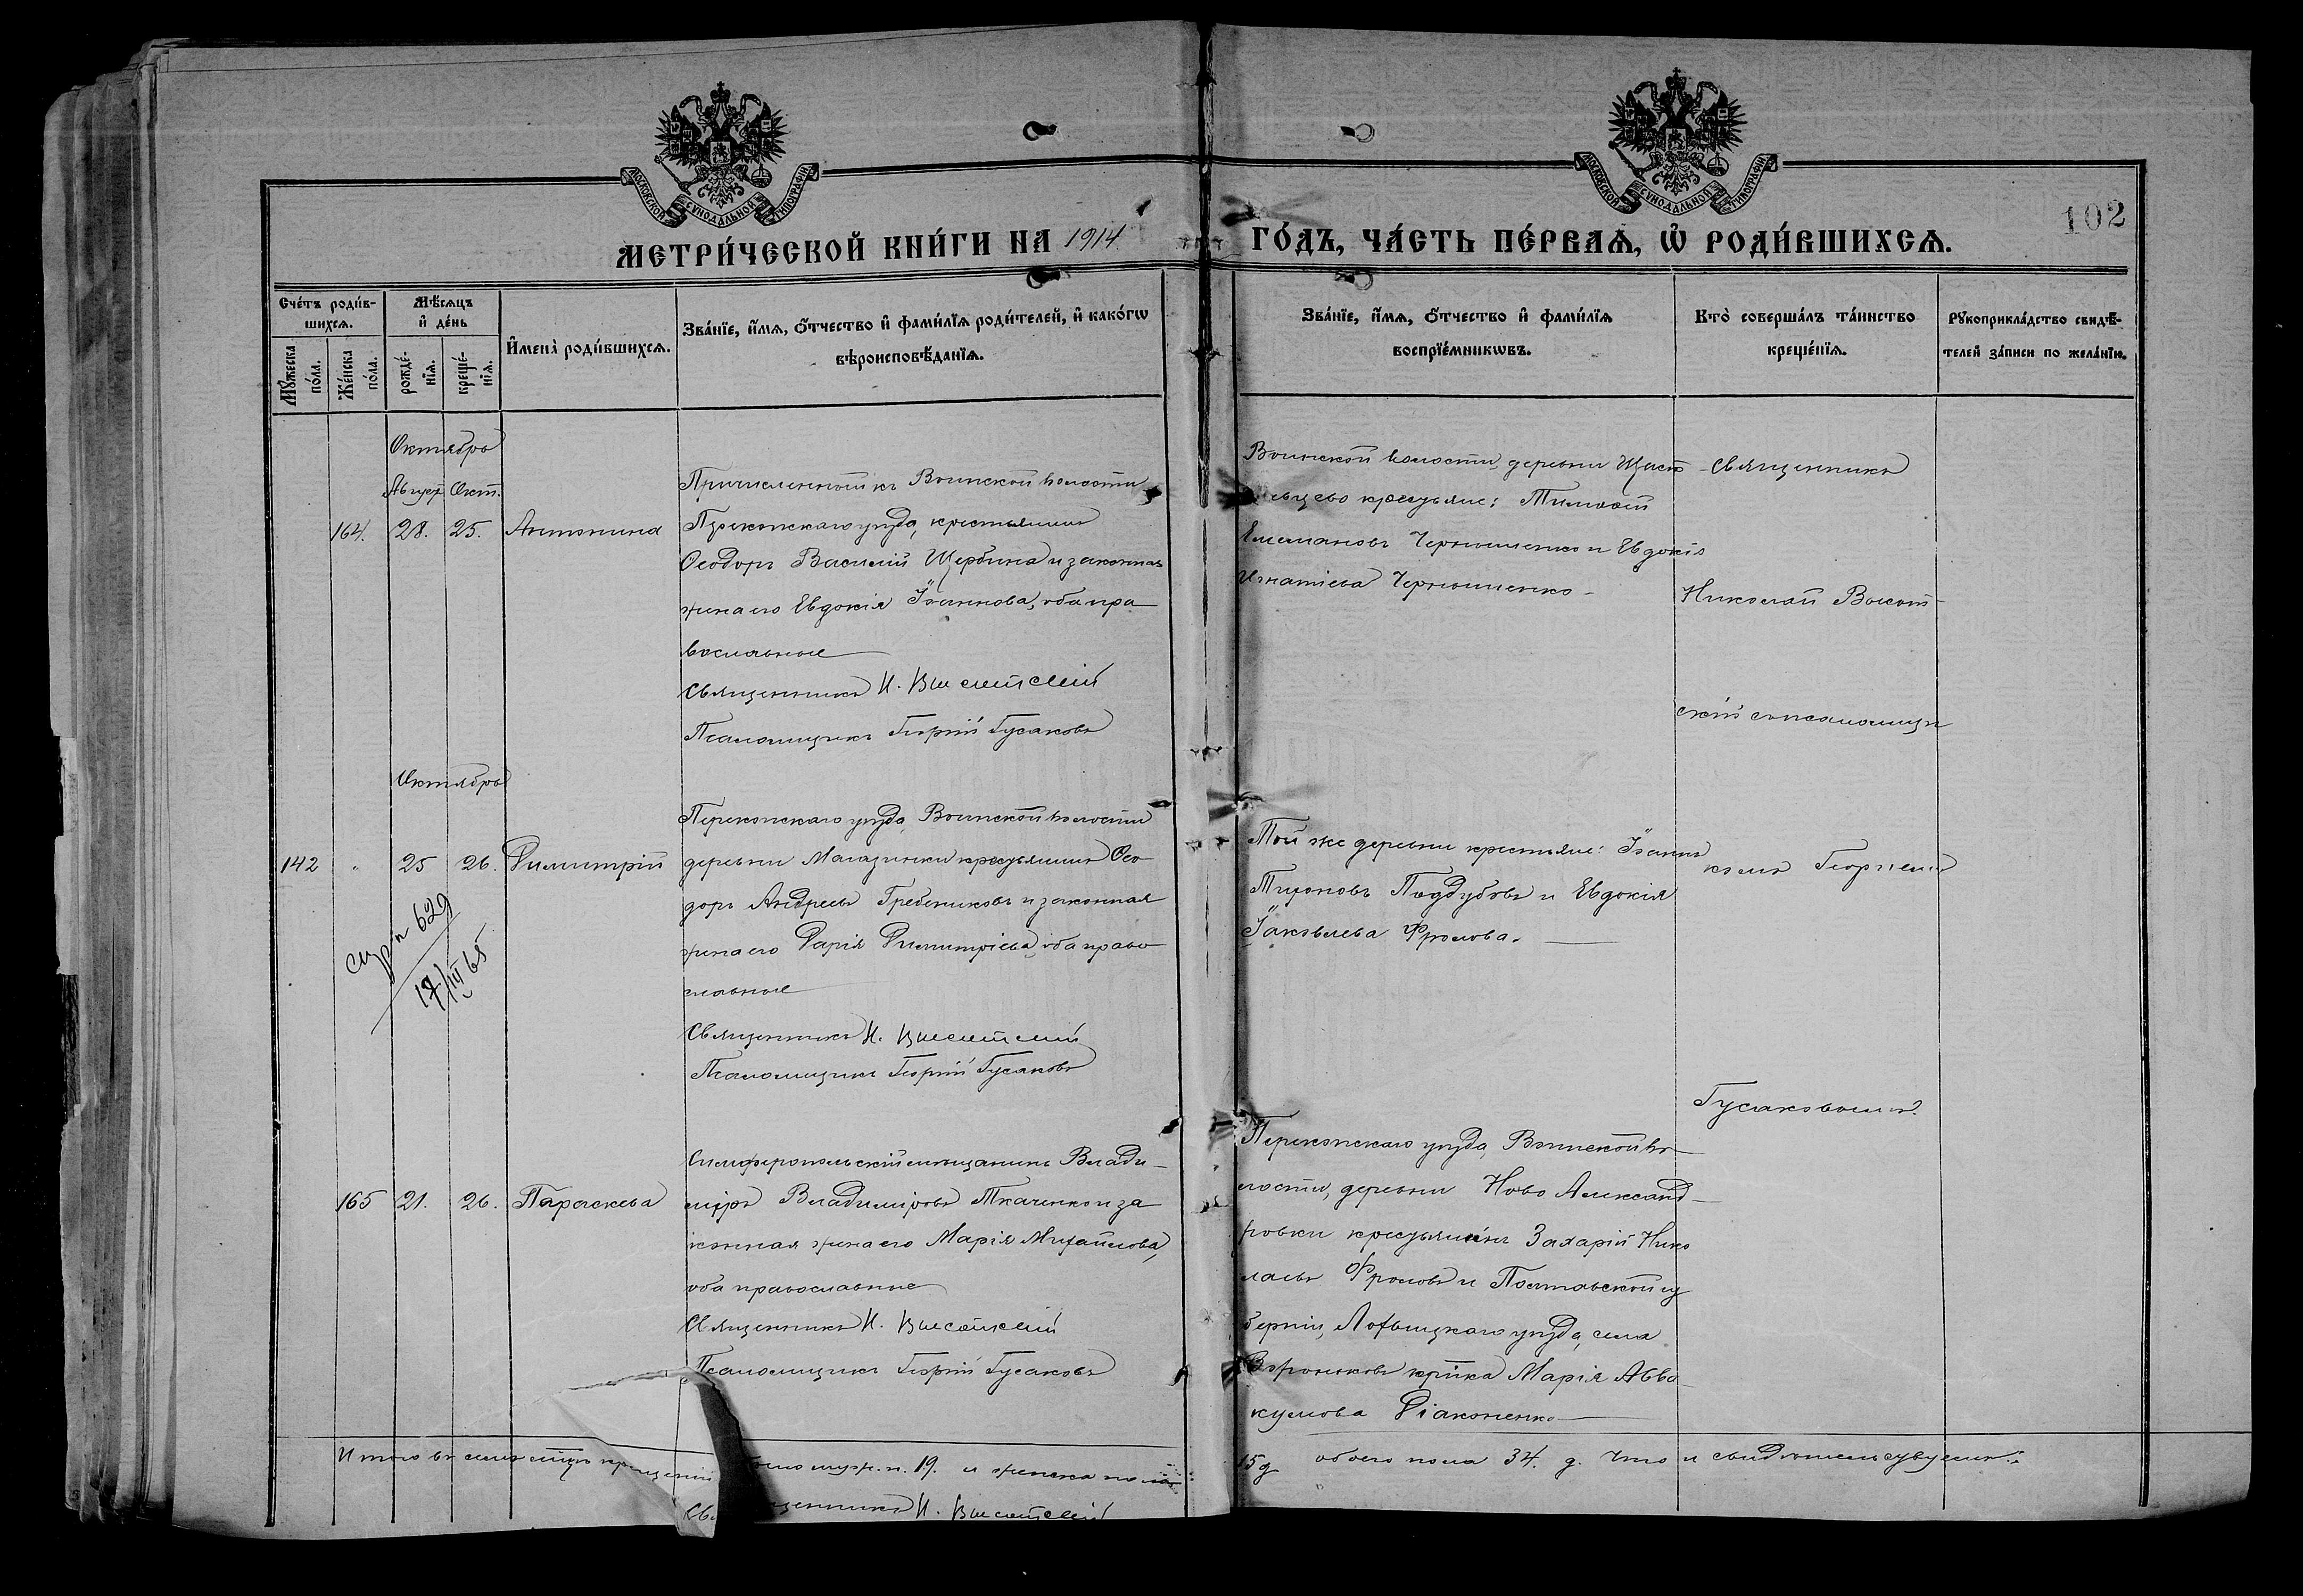 МОСКОВСКОЙ СѴНОДАЛЬНОЙ ТИПОГРАФІИ
МОСКОВСКОЙ СѴНОДАЛЬНОЙ ТИПОГРАФІИ
102
МЕТРИ́ЧЕСКОЙ КНИ́ГИ НА 1914 ГО́ДЪ, ЧА́СТЬ ПЕ́РВАѦ, Ѡ҆ РОДИ́ВШИХСѦ.
Сче́тъ роди́в-
шихсѧ.
Мѣ́сѧцъ
и҆ де́нь
И҆мена̀ роди́вшихсѧ.
Зва́нїе, и҆́мѧ, ѻ҆́тчество и҆ фами́лїѧ роди́телей, и҆ како́гѡ
вѣроисповѣ́данїѧ.
Мꙋ́жеска
по́ла.
Же́нска
по́ла.
рожде́-
нїѧ.
креще́-
нїѧ.
Зва́нїе, и҆́мѧ, ѻ҆́тчество и҆ фами́лїѧ
воспрїе́мникѡвъ.
Кто̀ соверша́лъ та́инство
креще́нїѧ.
Рꙋкоприкла́дство свидѣ́-
телей за́писи по жела́нїю.
Октябрь
Август Окт.
164. 28. 25. Антонина
Причисленный къ Воинской волости
Перекопскаго уѣзда, крестьянинъ
Ѳеодоръ Василій Щербина и законная
жена его Евдокія Іоаннова, оба пра
вославные
Священникъ Н. Высотскій
Псаломщикъ Георгій Гусаковъ
Воинской волости, деревни Щаст
крестьяне: Тимоѳей
Емельяновъ Чернышенко и Евдокія
Игнатіева Чернышенко -
Священникъ
Николай Высот-
скій съ псаломщи
Октябрь
142 " 25 26. Димитрій
Перекопскаго уѣзда, Воинской волости
деревни Магазинки крестьянинъ Ѳео-
доръ Андреевъ Гребениковъ и законная
жена его Дарія Димитріева, оба право
славные
Священникъ Н. Высотскій
Псаломщикъ Георгій Гусаковъ
n 629
17/III 65
Той же деревни крестьяне: Іоаннъ
Тихоновъ Поддубовъ и Евдокія
Іаковлева Фролова.
комъ Георгіемъ
Гусаковымъ.
165 21. 26. Параскева
Симферопольскій мѣщанинъ Влади-
міръ Владиміровъ Ткаченко и за
конная жена его Марія Михайлова,
оба православные
Священникъ Н. Высотскій
Псаломщикъ Георгій Гусаковъ
Перекопскаго уѣзда, Воинской во-
лости, деревни Ново Александ-
ровки крестьянинъ Захарій Нико
лаевъ Фроловъ и Полтавской гу
берніи, Лохвицкаго уѣзда, села
Воронковъ кр-ка Марія Авва-
кумова Діаконенко
Итого въ семъ мѣсяцѣ крещеній муж. п. 19. и женска пола
15 д обоего пола 34. д. Что и свидѣтельствуемъ:
Священникъ Н. Высотскій